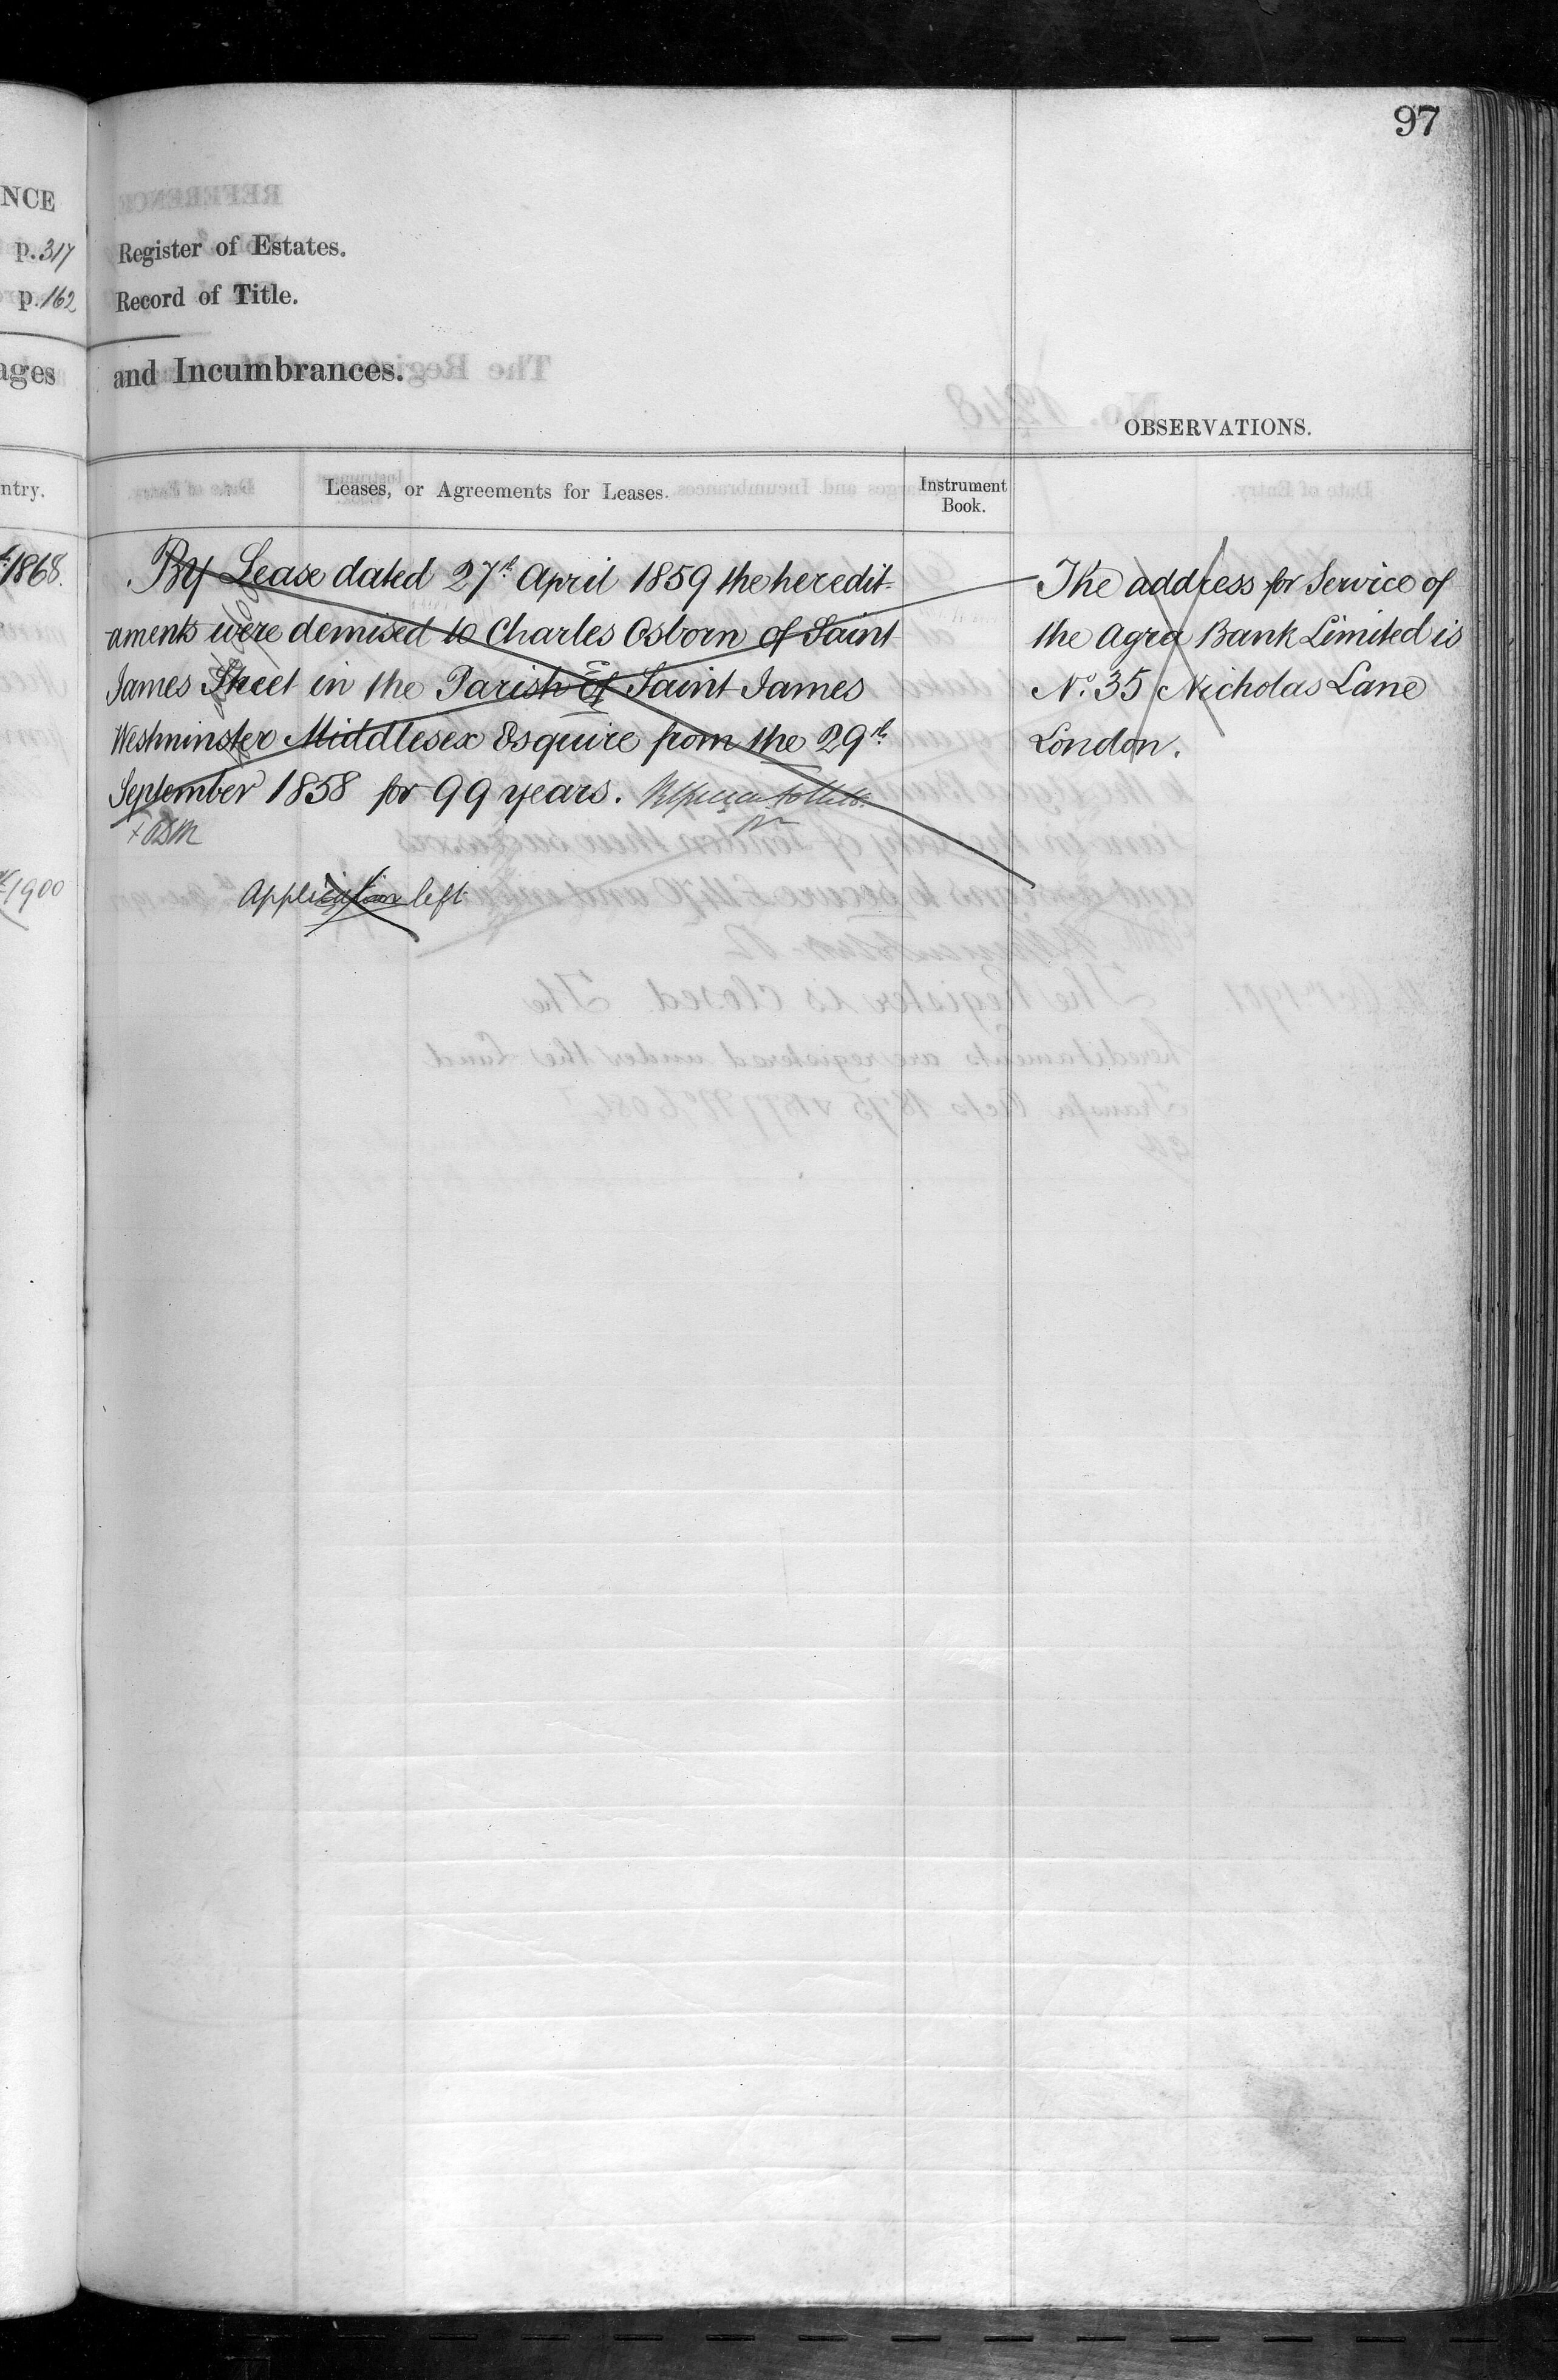 97
NCE
p. 317
Register of Estates.
p. 162
Record of Title.
ages
and Incumbrances.
OBSERVATIONS.
ntry.
Leases, or Agreements for Leases.
Instrument
Book.
1868.
By Lease dated 27th April 1859 the heredit-
aments were demised to Charles Osborn of Saint
James Street in the Parish of Saint James
Westminster Middlesex Esquire from the 29th
September 1858 for 99 years.
The address for Service of
the Agra Bank Limited is
No. 35 Nicholas Lane
London.
1900
Application left